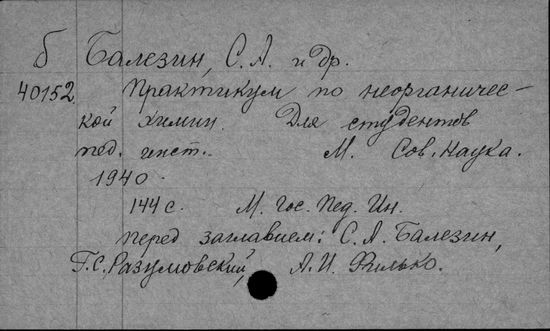 Б Балезин, С. А. и др.
40152 Практикум по неорганичес-
кой химии. Для студентов
пед. инст. М. Сов. наука.
1940.
144 с. М. Гос. Пед. Ин.
перед заглавием: С. А. Балезин,
Г. С. Разумовский, А. И. Филько.